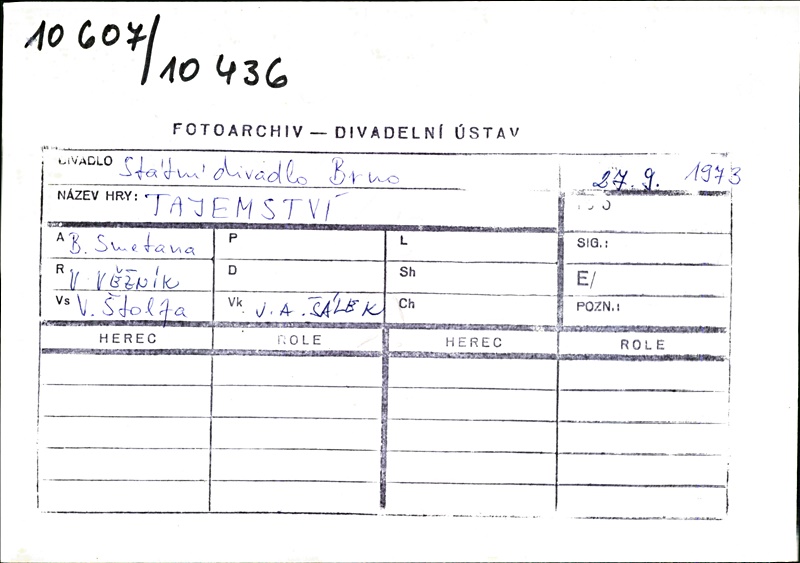 10 607/
10 436
FOTOARCHIV — DIVADELNÍ ÚSTAV
DIVADLO Státní divadlo Brno 27. 9. 1973
NÁZEV HRY: TAJEMSTVÍ
A B. Smetana P L SIG.:
R V. VĚŽNÍK D Sh E/
Vs V. Štolfa Vk J. A. ŠÁLEK Ch POZN.:
HEREC ROLE HEREC ROLE